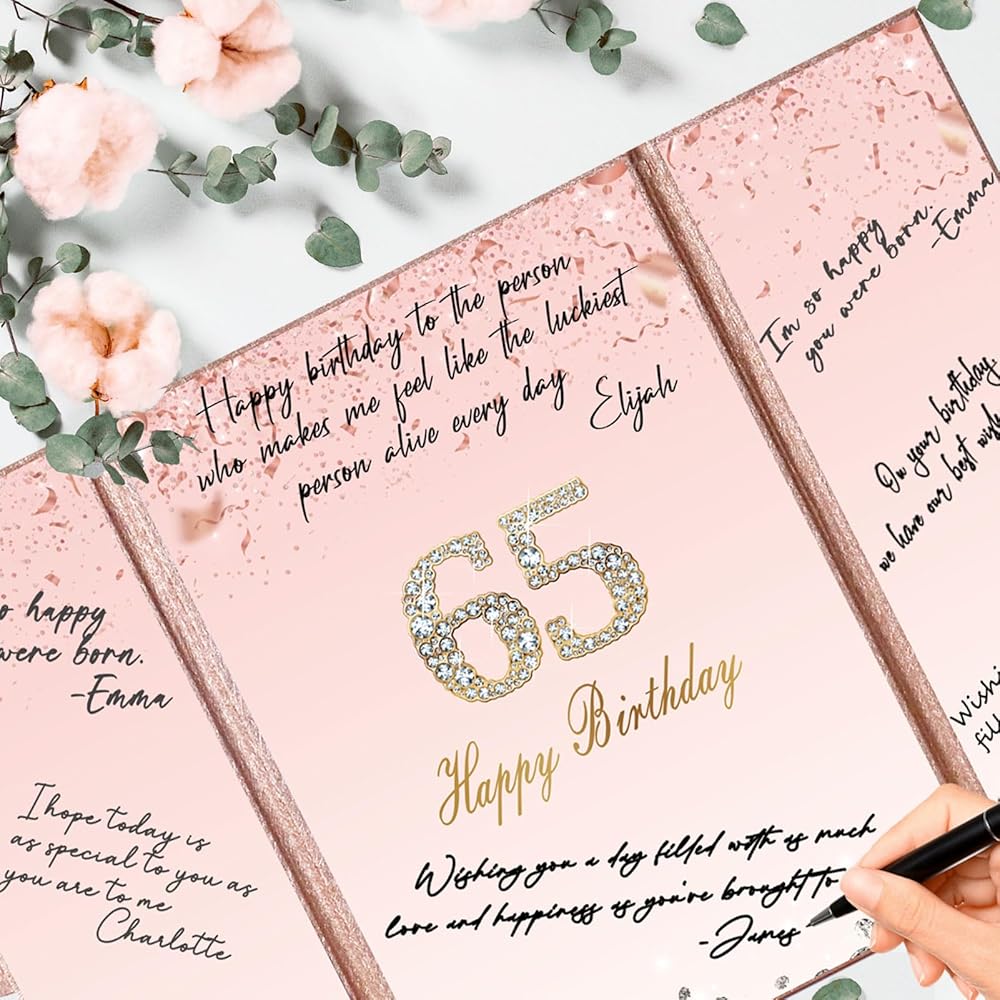 happy
were born.
-Emma
I hope today is
as special to you as
you are to me
Charlotte
Happy birthday to the person
who makes me feel like the luckiest
person alive every day
Elijah
65
Happy Birthday
Wishing you a day filled with as much
love and happiness as you're brought to
-James
I'm so happy
you were born.
-Emma
On your birthday,
we have our best